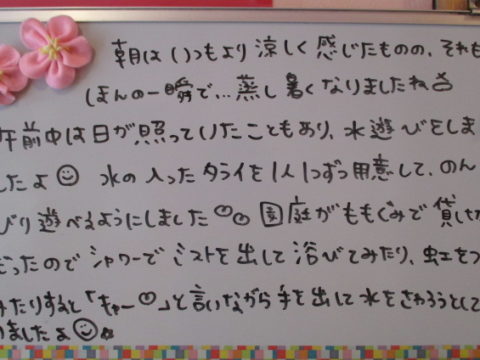 朝はいつもより涼しく感じたものの、それも
ほんの一瞬で…蒸し暑くなりましたね
午前中は日が照っていたこともあり、水遊びをしま
したよ 水の入ったタライを1人1つずつ用意して、のん
びり遊べるようにしました 園庭がももぐみで貸し切
だったのでシャワーでミストを出して浴びてみたり、虹をつ
みたりすると「キャー」と言いながら手を出して水をさわろうとして
いましたよ